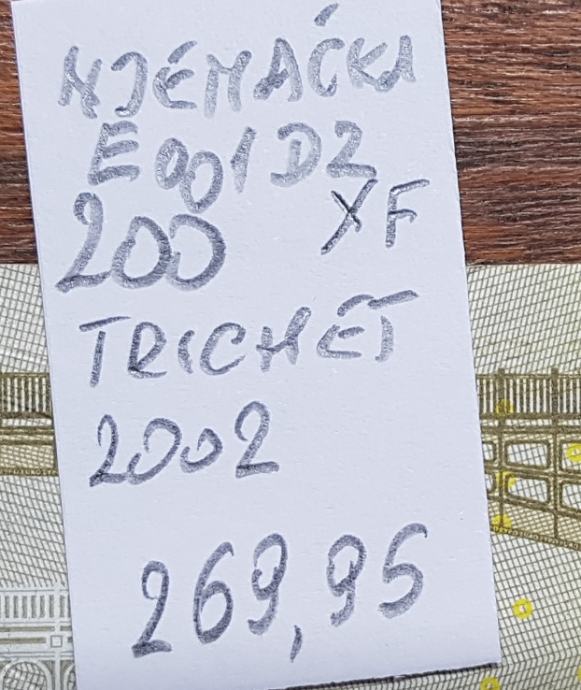 NJEMAČKA
E001D2
200 XF
TRICHET
2002
269,95